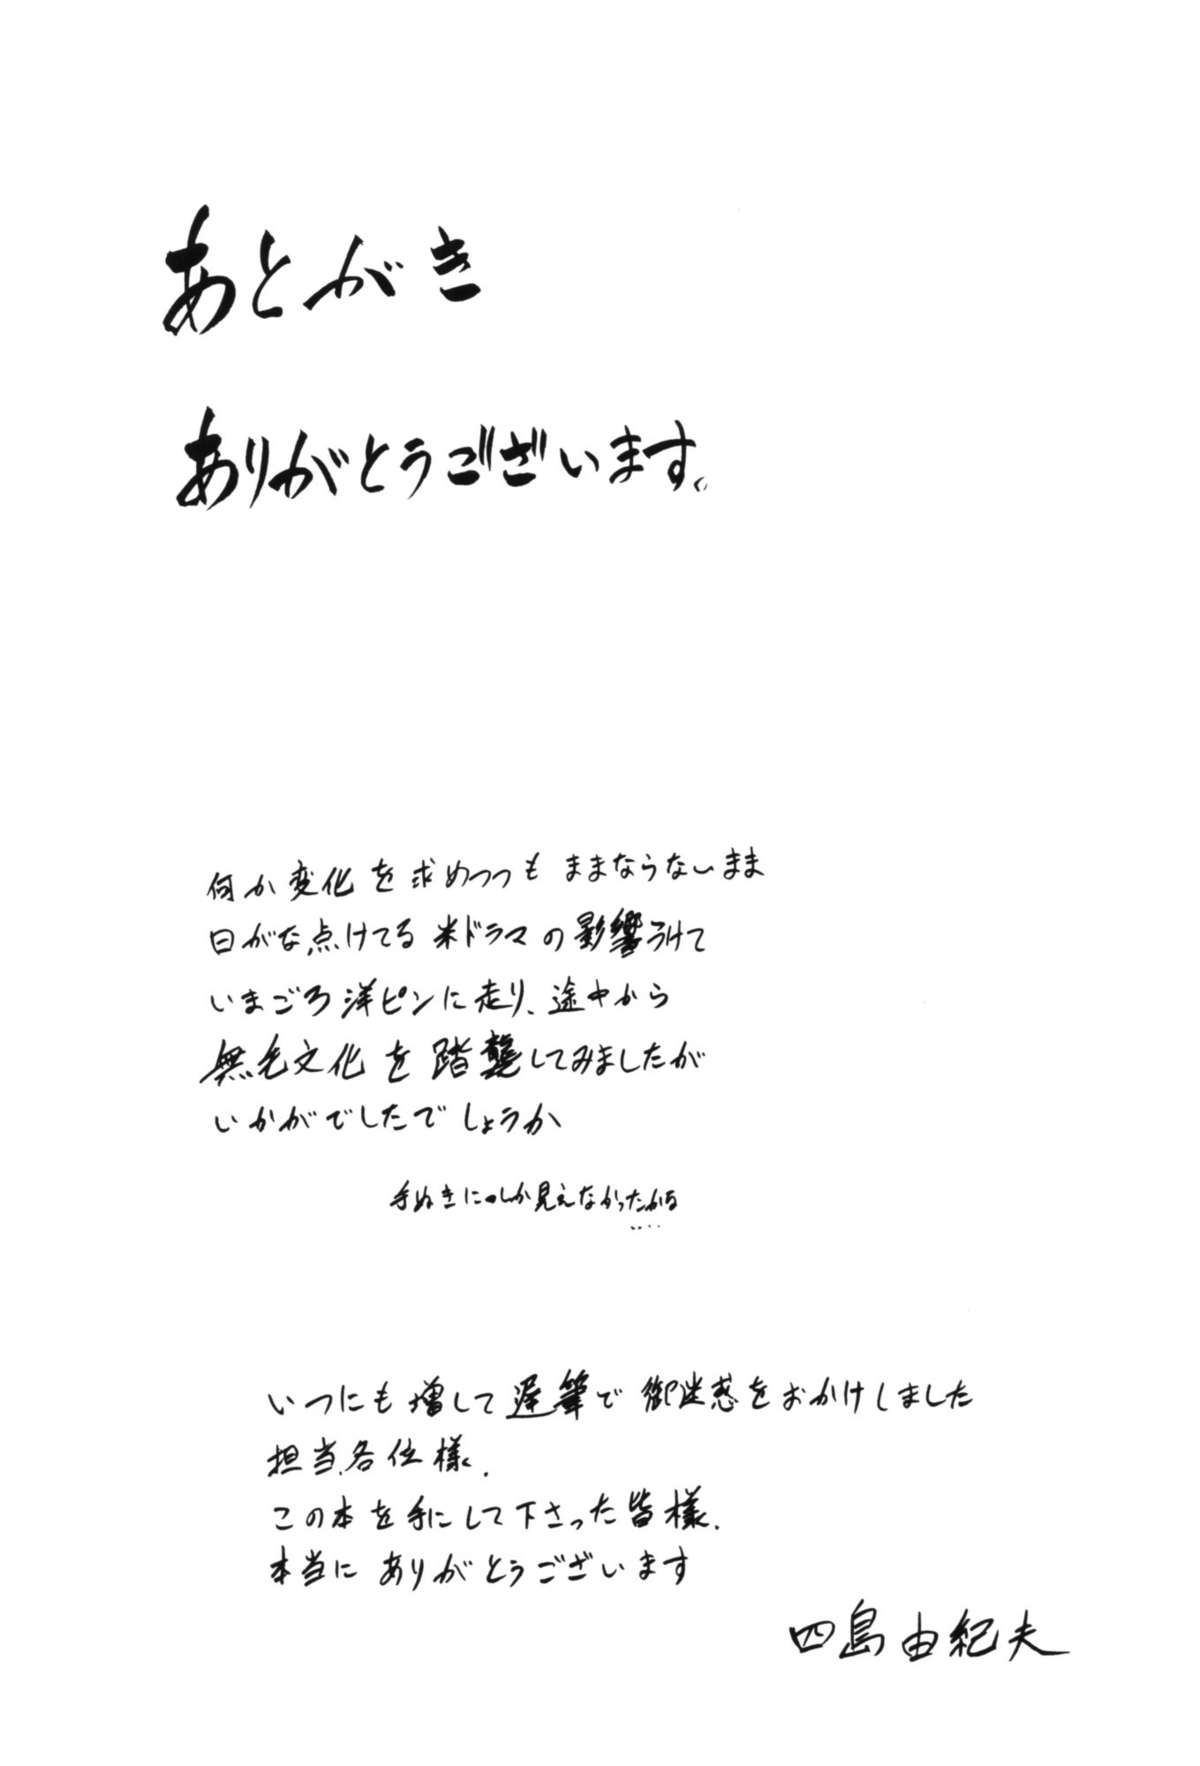 あとがき
ありがとうございます。
何か変化を求めつつも ままならないまま
日がな点けてる 米ドラマの影響うけて
いまごろ洋ピンに走り、途中から
無毛文化を踏襲してみましたが
いかがでしたでしょうか
手ぬきにしか見えなかったかも
....
いつにも増して遅筆で 御迷惑をおかけしました
担当各位様、
この本を手にして下さった皆様、
本当に ありがとうございます
四島由紀夫